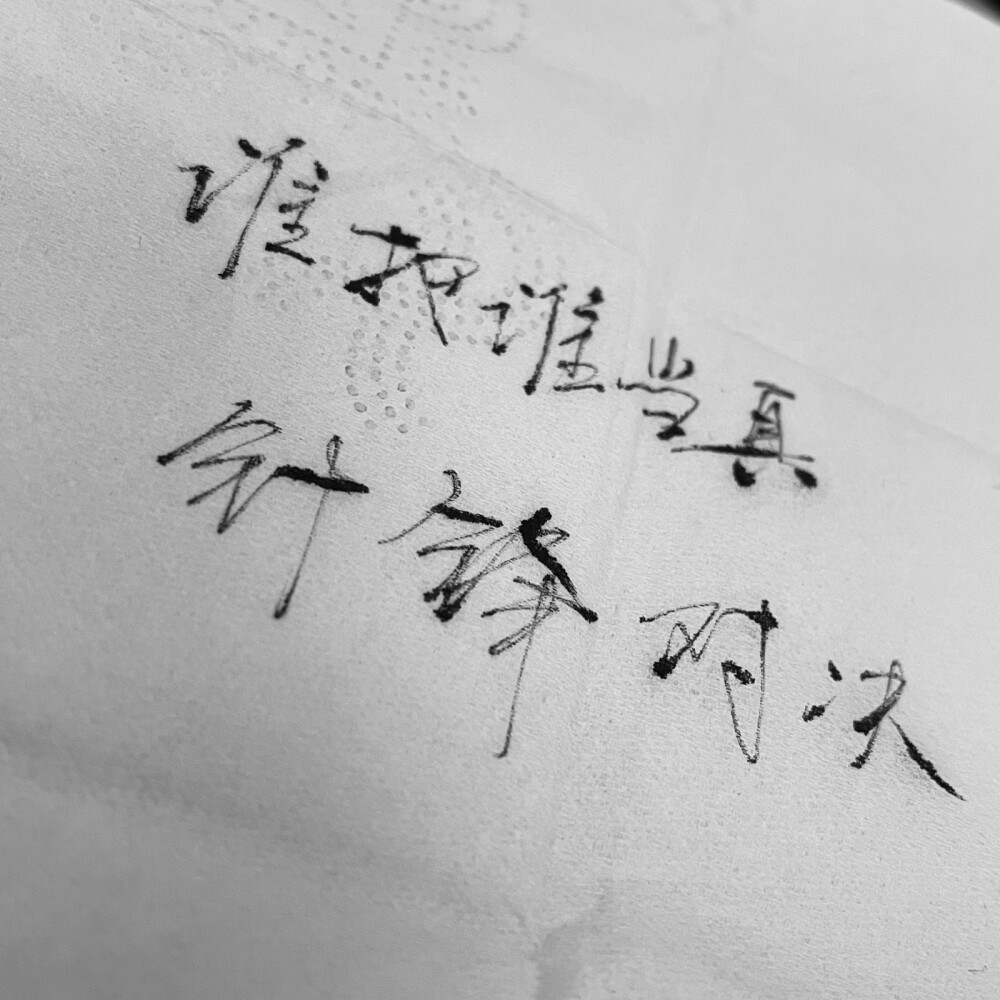 谁把谁当真
针锋对决